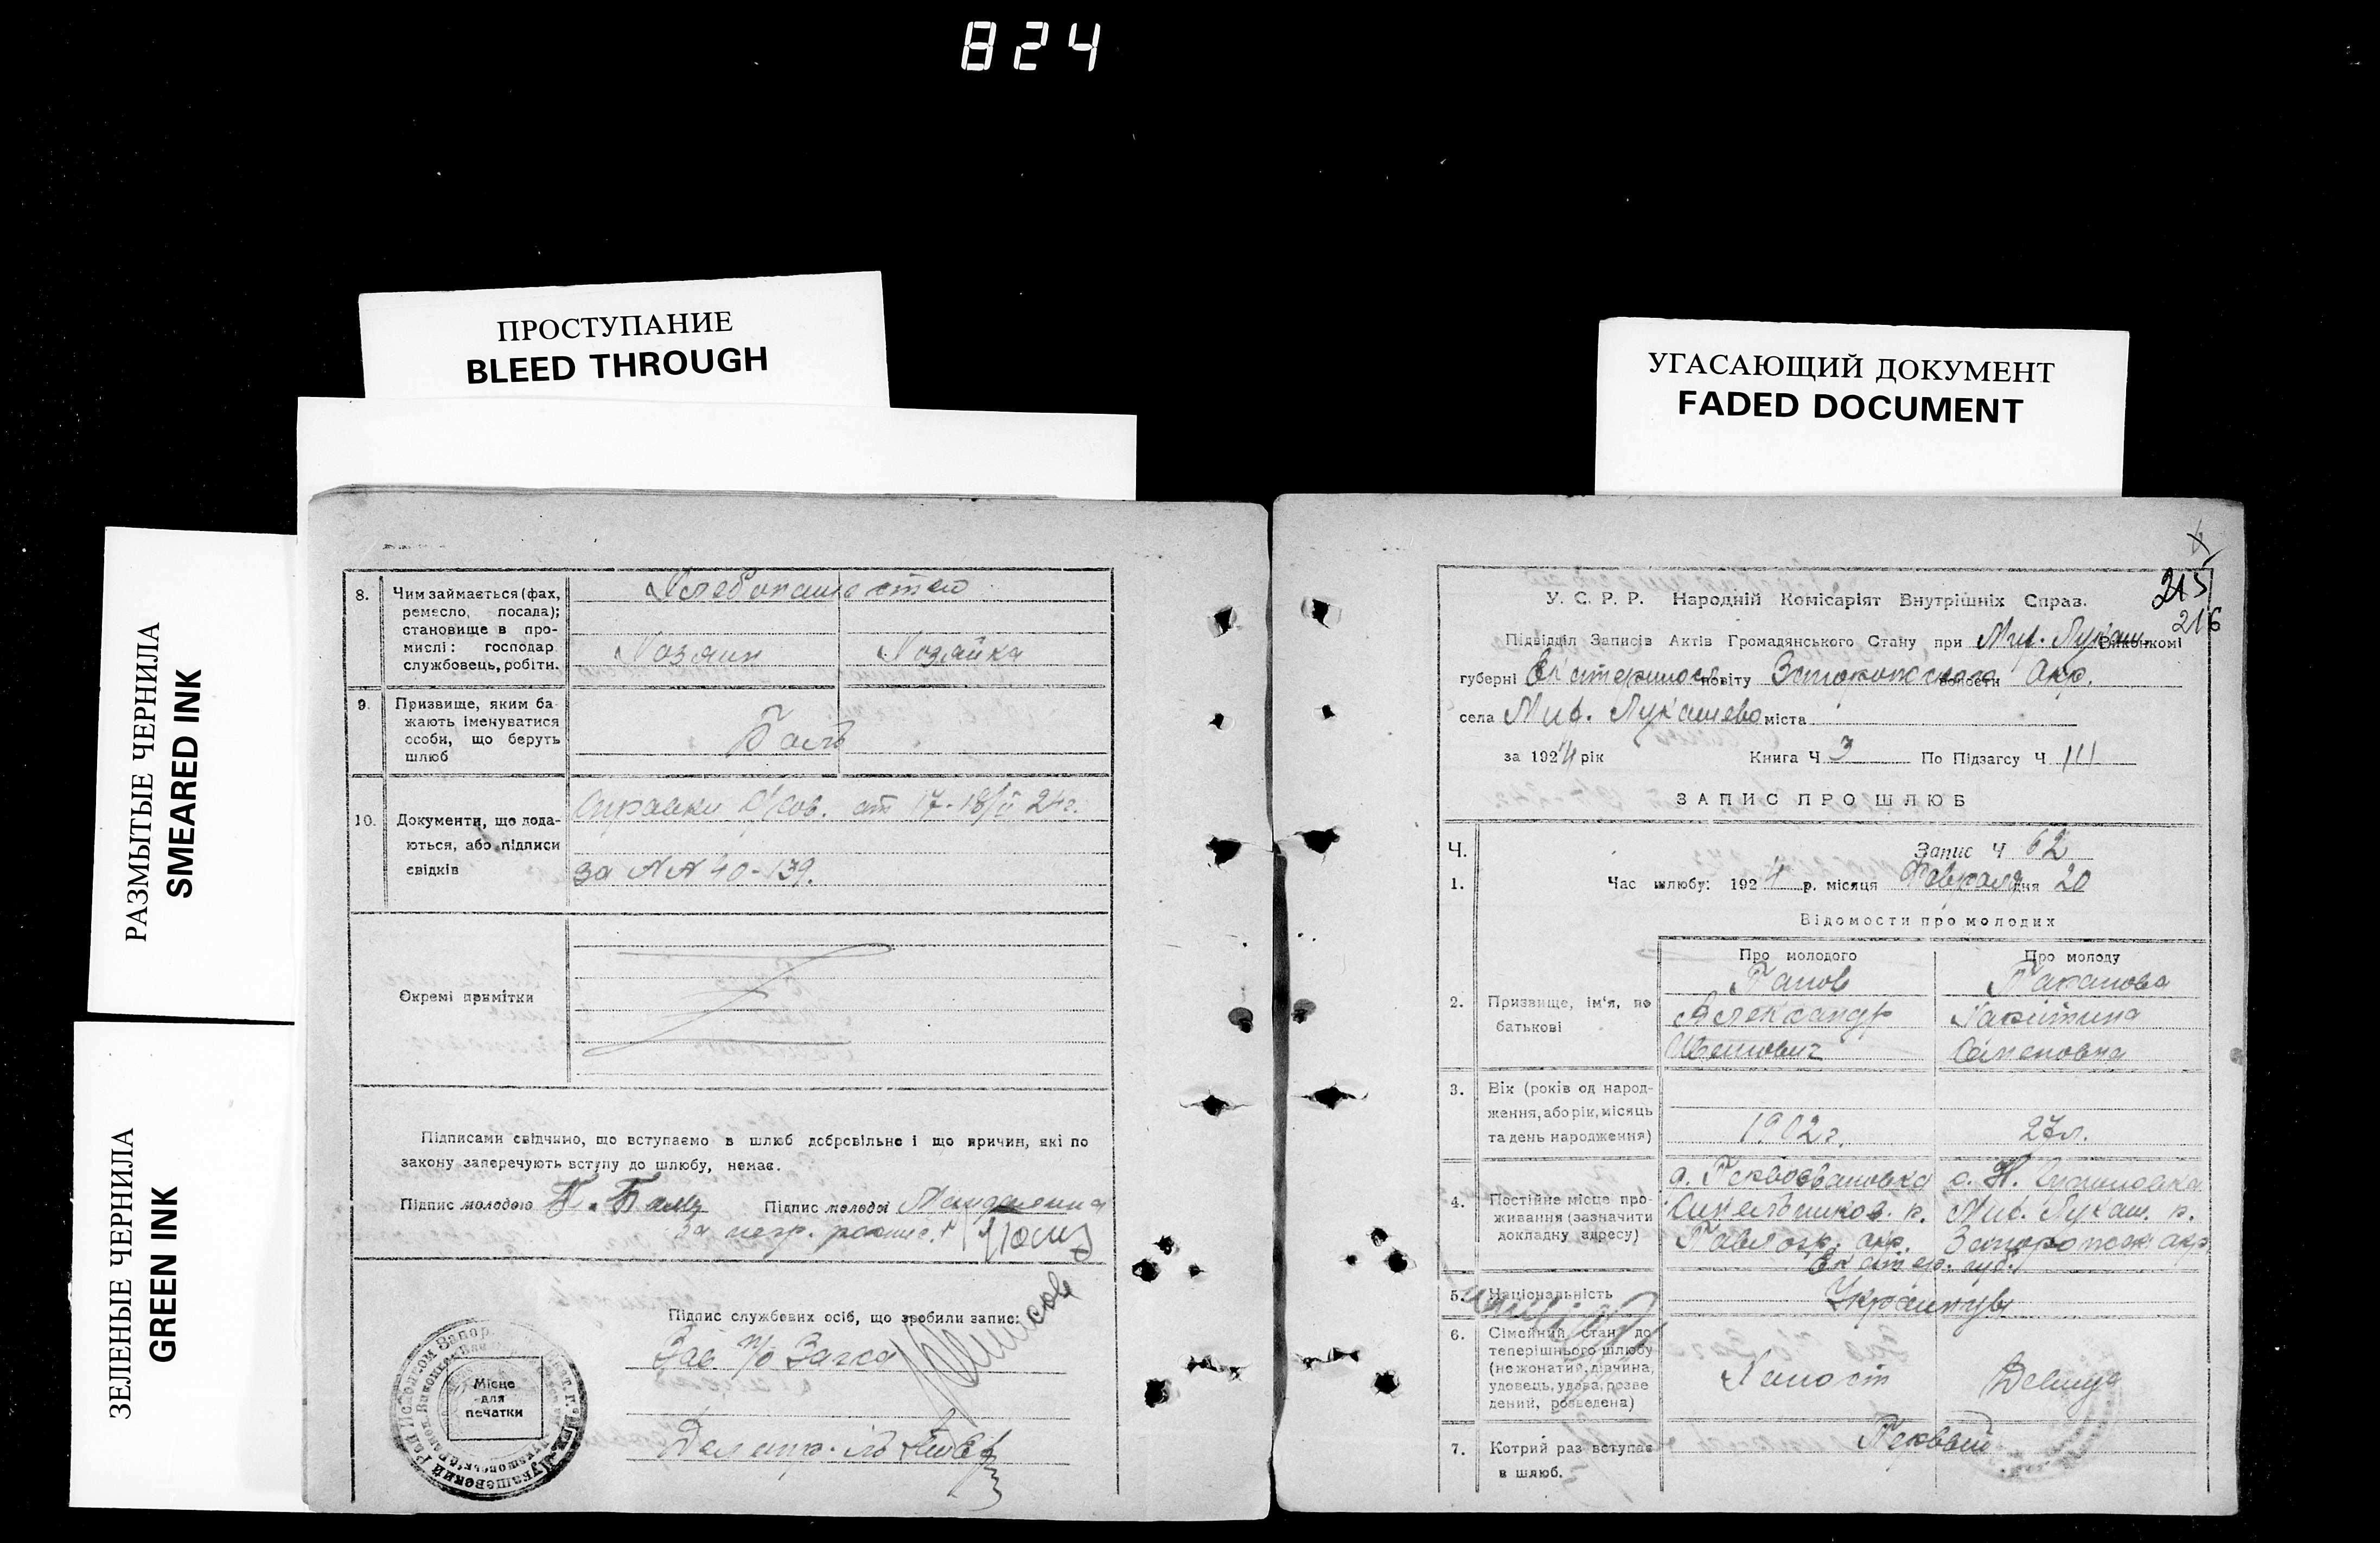 824
ПРОСТУПАНИЕ
BLEED THROUGH
УГАСАЮЩИЙ ДОКУМЕНТ
FADED DOCUMENT
РАЗМЫТЫЕ ЧЕРНИЛА
SMEARED INK
ЗЕЛЕНЫЕ ЧЕРНИЛА
GREEN INK
8. Чим займається (фах, Хлебопашество
ремесло, посада);
становище в про-
мислі: господар Хозяин Хозяйка
службовець, робітн.
9. Призвище, яким ба-
жають іменуватися
особи, що беруть
шлюб
Справки С/Сов. от 17-18/II 24г.
10. Документи, що дода-
ються, або підписи
свідків за №№ 40-139.
Окремі примітки
Підписами свідчимо, що вступаємо в шлюб добровільно і що причин, які по
закону заперечують вступу до шлюбу, немає.
Підпис молодого Підпис молодої
за негр.
Підпис службових осіб, що зробили запис:
Зав. п/о Загса
Місце
для
печатки
Делопр.
215
216
У. С. Р. Р. Народній Комісаріят Внутрішніх Справ.
Підвідділ Записів Актів Громадянського Стану при Мих. Лукаш. Виконкомі
губерні Екатеринос. повіту Запорожского волости Окр.
села Мих. Лукашево міста
за 1924 рік Книга Ч 3 По Підзагсу Ч III
ЗАПИС ПРО ШЛЮБ
Ч. Запис Ч 62
1. Час шлюбу: 1924 р. місяця Февраля дня 20
Відомости про молодих
Про молодого Про молоду
2. Призвище, ім'я, по
батькові
Александр
Иванович Семеновна
3. Вік (років од народ-
ження, або рік, місяць
та день народження) 1902г. 27л.
с. Первозвановка
4. Постійне місце про-
живання (зазначити
докладну адресу)
Синельников. р. Мих. Лукаш. р.
Павлогр. окр. Запорожск окр
Екатер. губ.
5. Національність Украинцы
6. Сімейний стан до
теперішнього шлюбу
(нежонатий, дівчина,
удовець, удова, розве
дений, розведена) Холост Девица
7. Котрий раз вступає Первый
в шлюб.